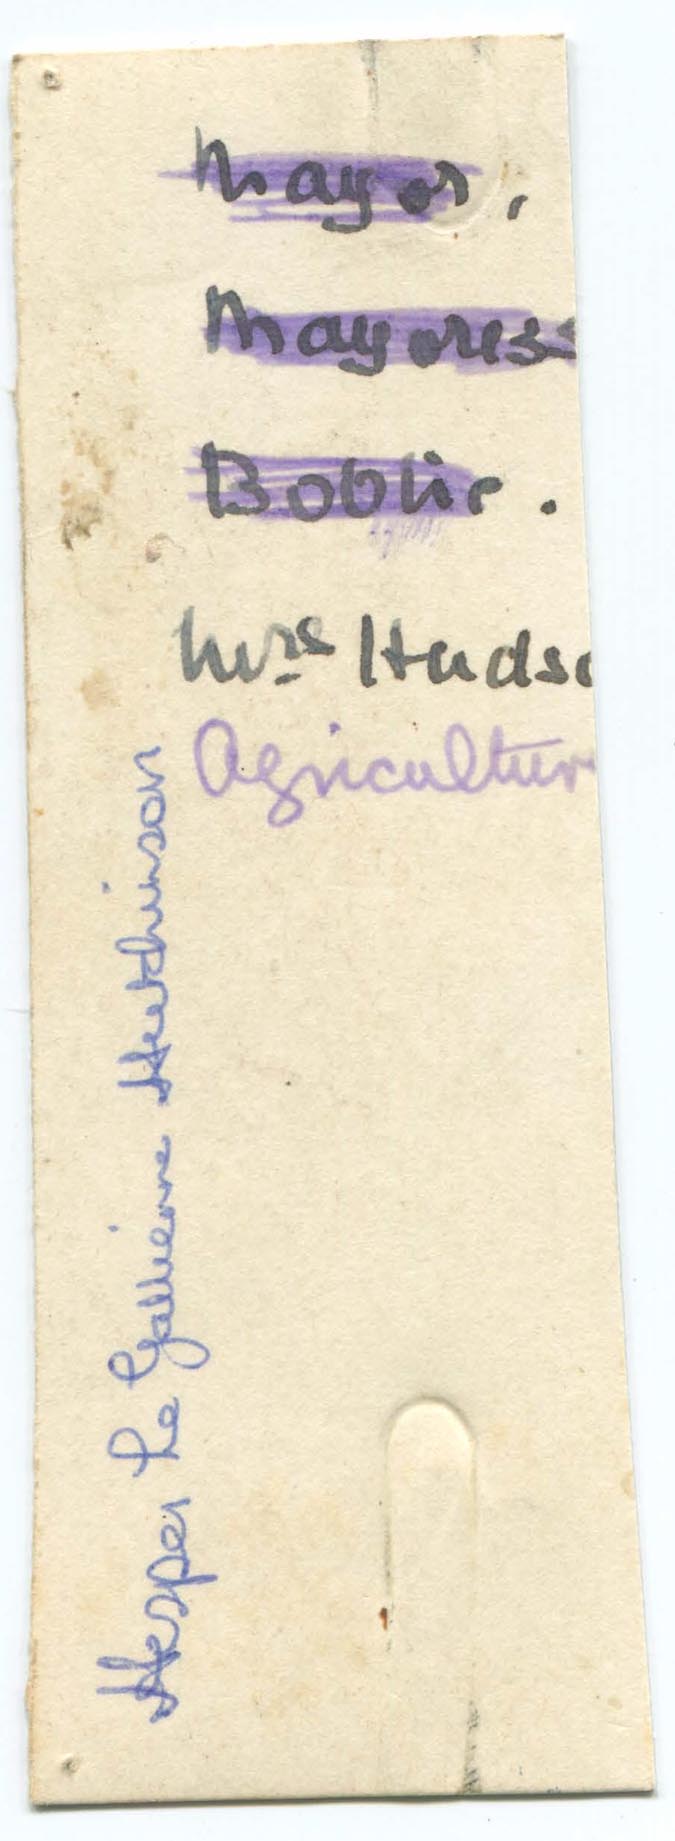 Mayor,
Mayoress
Bobbie.
Mrs Hudso
Agricultur
Hesper Le Gallienne Hutchinson